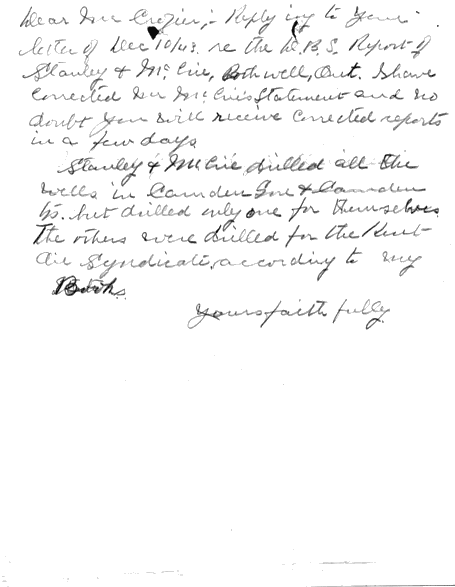 Dear Mr Crozier,:- Replying to your
letter of Dec 10/43. re the D.B.S. Report of
Stanley & McCrie, Bothwell, Ont. I have
corrected Mr McCrie's Statement and no
doubt you will receive corrected reports
in a few days
Stanley & McCrie drilled all the
wells in Camden Gore & Camden
Tp. but drilled only one for themselves
The others were drilled for the Kent
Oil Syndicate, according to my
Books.
Yours faithfully